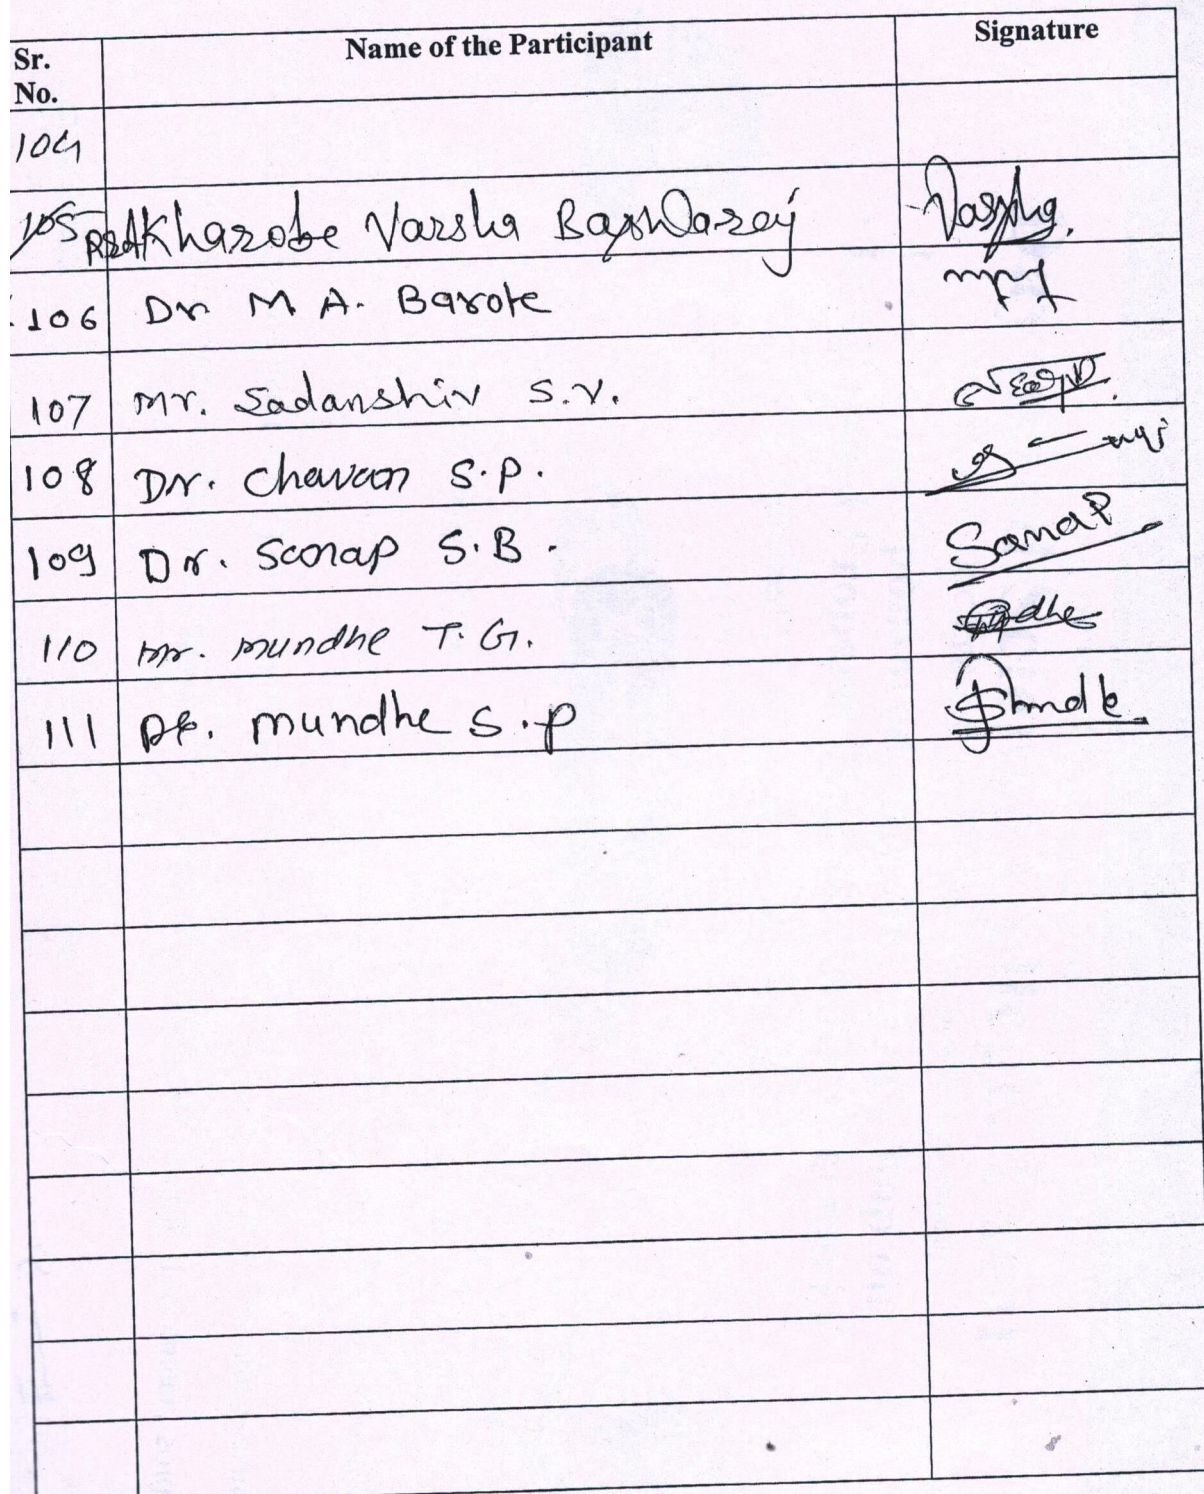 Sr. No. Name of the Participant Signature
104
105 Kharobe Varsha Varsha.
106 Dr M. A. Barote
107 Mr. Sadanshiv S.V.
108 Dr. Chavan S.P.
109 Dr. Sanap S.B. Sanap
110 Mr. Mundhe T.G.
111 Dr. Mundhe S.P